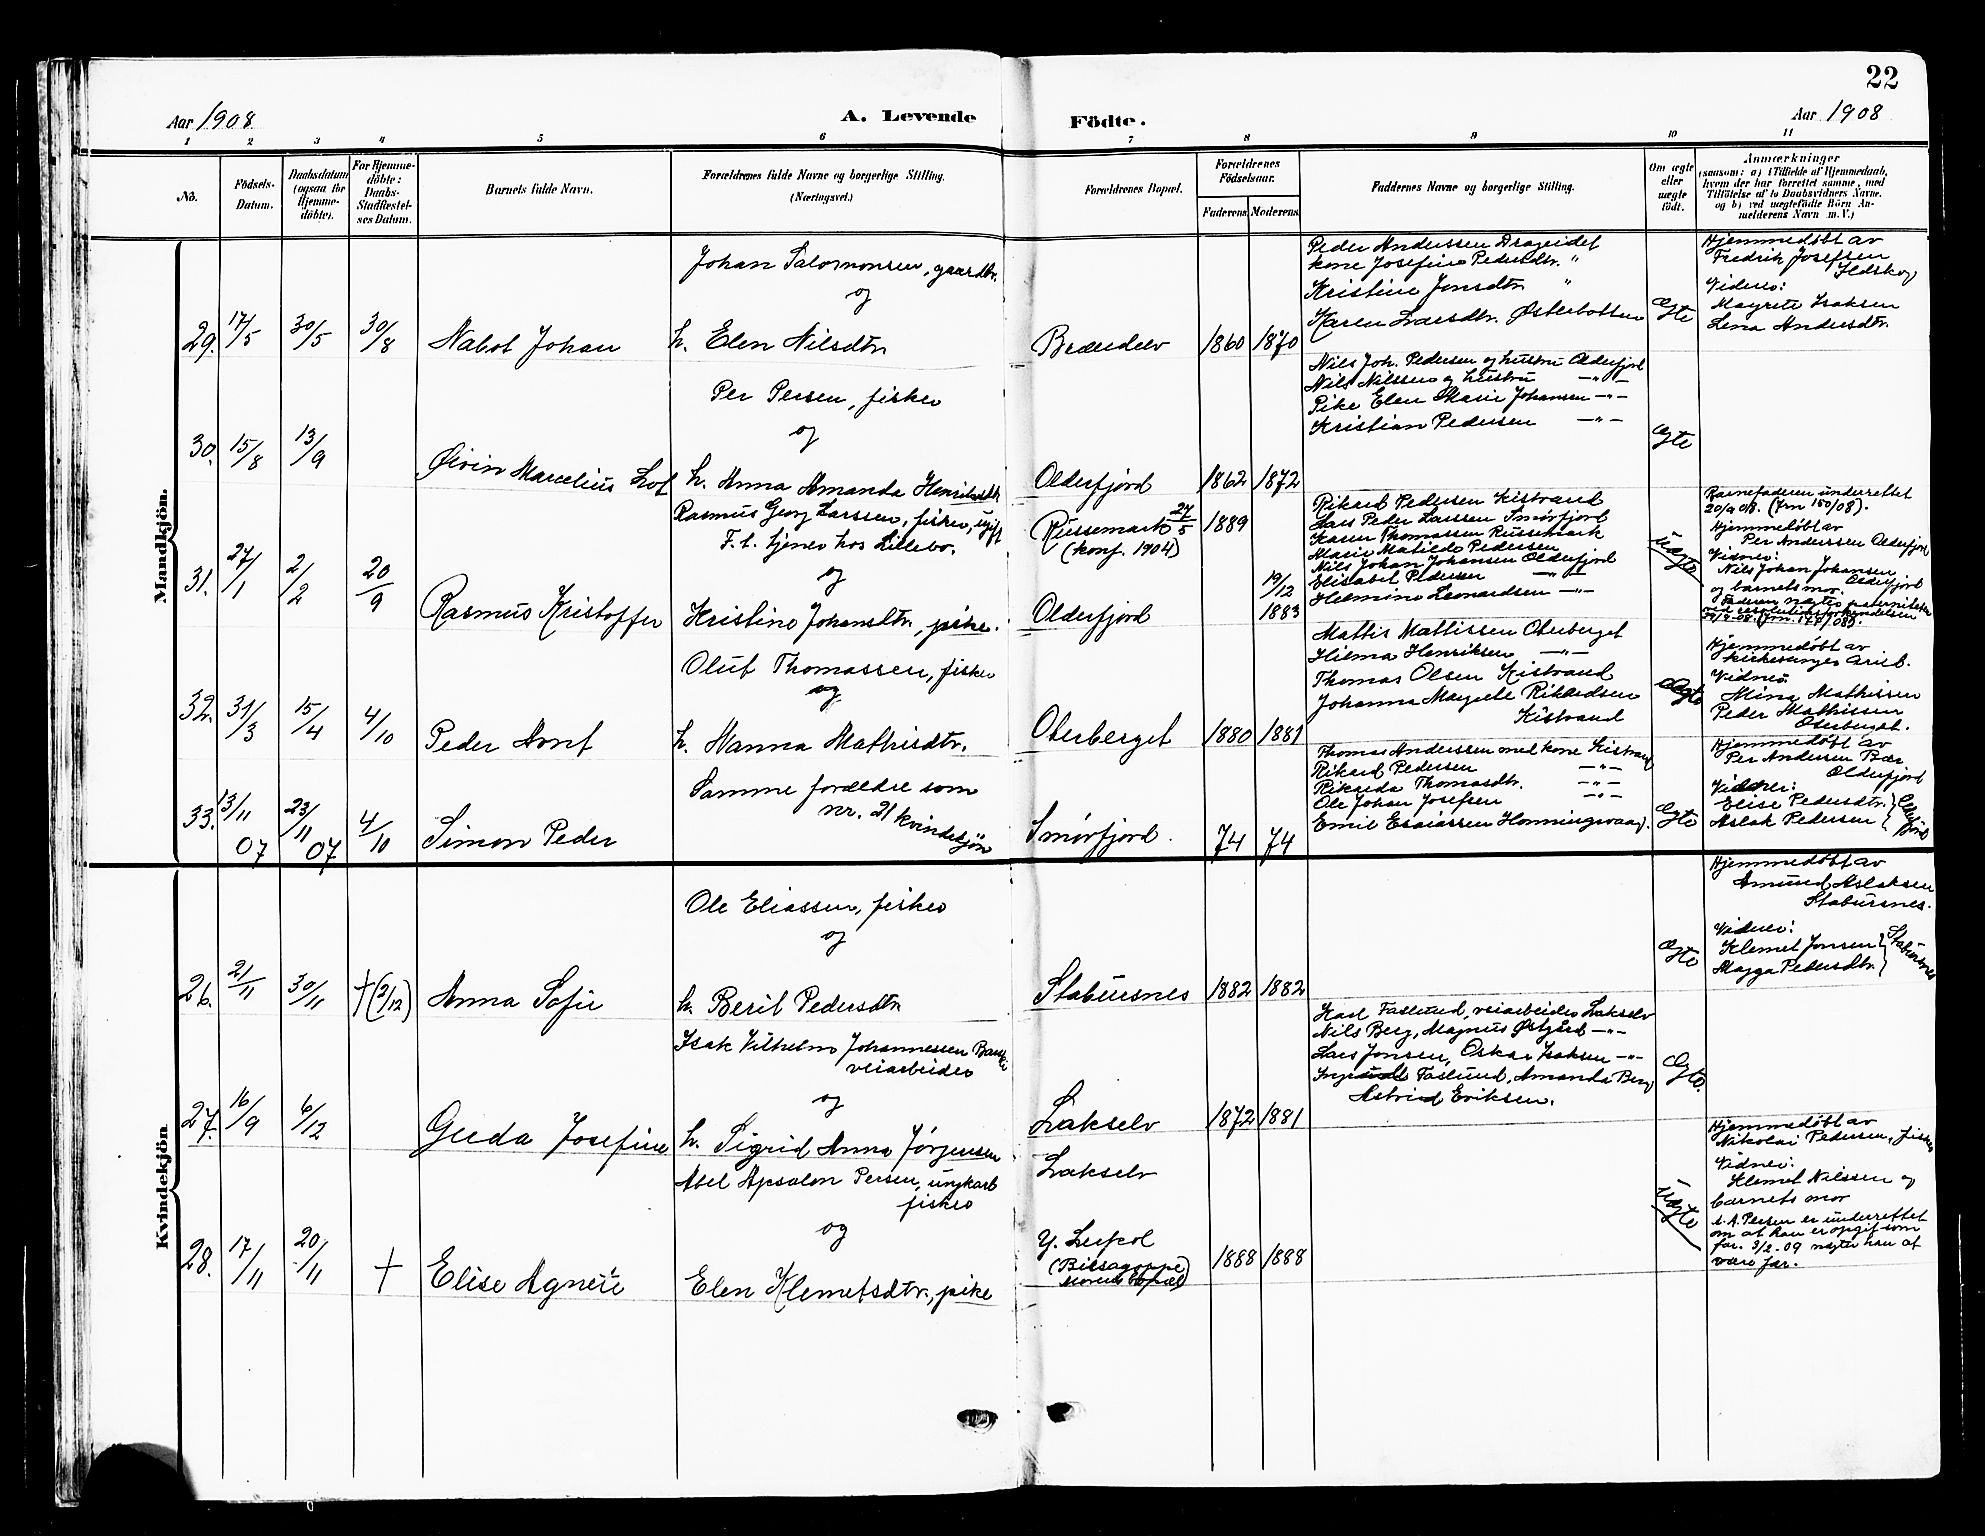 22
Aar 1908
A. Levende Födte.
Aar 1908
1 2 3 4 5 6 7 8 9 10 11
No.
Födsels-Datum.
Daabsdatum (ogsaa for Hjemme-döbte).
For Hjemme-döbte: Daabs-Stadfæstel-ses Datum.
Barnets fulde Navn.
Forældrenes fulde Navne og borgerlige Stilling.
(Næringsvei.)
Forældrenes Bopæl.
Forældrenes Födselsaar.
Faderens Moderens
Faddernes Navne og borgerlige Stilling.
Om ægte eller uægte födt.
Anmærkninger
(saasom: a) i Tilfælde af Hjemmedaab, hvem der har forrettet samme, med Tilföielse af to Daabsvidners Navne. og b) ved uægtefödte Börn An-melderens Navn m. V.)
Mandkjön.
29. 17/5 30/5 30/8 Nabot Johan
Johan Salomonsen, gaardbr.
og
h. Elen Nilsdtr
Brændelv 1860 1870
Peder Anderssen Drageidet
kone Josefine Pedersdtr. "
Kristine Jonsdtr "
Karen Larsdtr. Østerbotten
Egte
Hjemmedøbt av
Fredrik Josefsen
Ildskog
Vidner:
Magrete Isaksen
Lena Andersdtr.
30. 15/8 13/9 Øivin Marcelius Lof
Per Persen, fisker
og
h. Anna Amanda Henriksdtr
Olderfjord 1862 1872
Nils Joh. Pedersen og hustru Olderfjord
Nils Nilssen og hustru —"—
Pike Elen Marie Johansen —"—
Kristian Pedersen —"—
Egte
31. 27/1 2/2 20/9 Rasmus Kristoffer
Rasmus Georg Larssen, fisker, ugift
F. t. tjener hos Lillebo.
og
Kristine Johansdtr, pike.
Russemark 27/5 1889
(konf. 1904)
Olderfjord 19/12 1883
Rikard Pedersen Kistrand
Lars Peder Larssen Smørfjord
Karen Thomassen Russemark
Marie Matilde Pedersen
Nils Johan Johansen Olderfjord
Elisabet Pedersen —"—
Helmine Leonardsen —"—
Uægte
Barnefaderen underrettet
20/9 08. (Jrn 150/08).
Hjemmedøbt av
Per Anderssen Olderfjord
Vidner:
Nils Johan Johansen
Olderfjord
og barnets mor.
Faderen nægter paterniteten
32. 31/3 15/4 4/10 Peder Arnt
Oluf Thomassen, fisker
og
h. Hanna Mathisdtr.
Oterberget 1880 1881
Mattis Mattissen Oterberget
Hilma Henriksen —"—
Thomas Olsen Kistrand
Johanna Magrete Rikardsen
Kistrand
Egte
Hjemmedøbt av
kirkesanger Arild.
Vidner
Mina Mathissen
Peder Mathissen
Oterberget.
33. 13/11 07 23/11 07 4/10 Simon Peder
Samme forældre som
nr. 21 kvindekjøn
Smørfjord. 74 74
Thomas Anderssen med kone Kistrand
Rikard Pedersen —"—
Rikarda Thomasdtr. —"—
Ole Johan Josefsen —"—
Emil Esaiassen Honningsvaag.
Egte
Hjemmedøbt av
Per Andersen Bær
Olderfjord
Vidner:
Elise Pedersdtr.
Aslak Pedersen
Kvindekjön
26. 21/11 30/11 †(2/12) Anna Sofie
Ole Eliassen, fisker
og
h. Beril Pedersdtr
Stabursnes 1882 1882
Egte
Hjemmedøbt av
Amund Aslaksen
Stabursnes.
Vidner:
Klemet Jonsen
Magga Pedersdtr.
Stabursnes
27. 16/9 6/12 Guda Josefine
Isak Vilhelm Johannessen
veiarbeider
og
h. Sigrid Anna Jørgensen
Lakselv 1872 1881
Karl Faslund, veiarbeider Lakselv
Nils Berg, Magnus Østgård —"—
Lars Jonsen, Oskar Isaksen —"—
Faslund, Amanda Berg
Astrid Eriksen.
Egte.
28. 17/11 20/11 † Elise Agnete
Abel Apsalon Persen, ungkarl
fisker
og
Elen Klemetsdtr., pike
Lakselv
Y. Leirpol
(Billagoppe)
Morens bopæl
1888 1888
Uægte
Hjemmedøbt av
Nikolai Pedersen, fisker
Vidner:
Klemet Nilssen og
barnets mor
A. A. Persen er underrettet
om at han er opgit som
far. 3/2-09 nægter han at
være far.